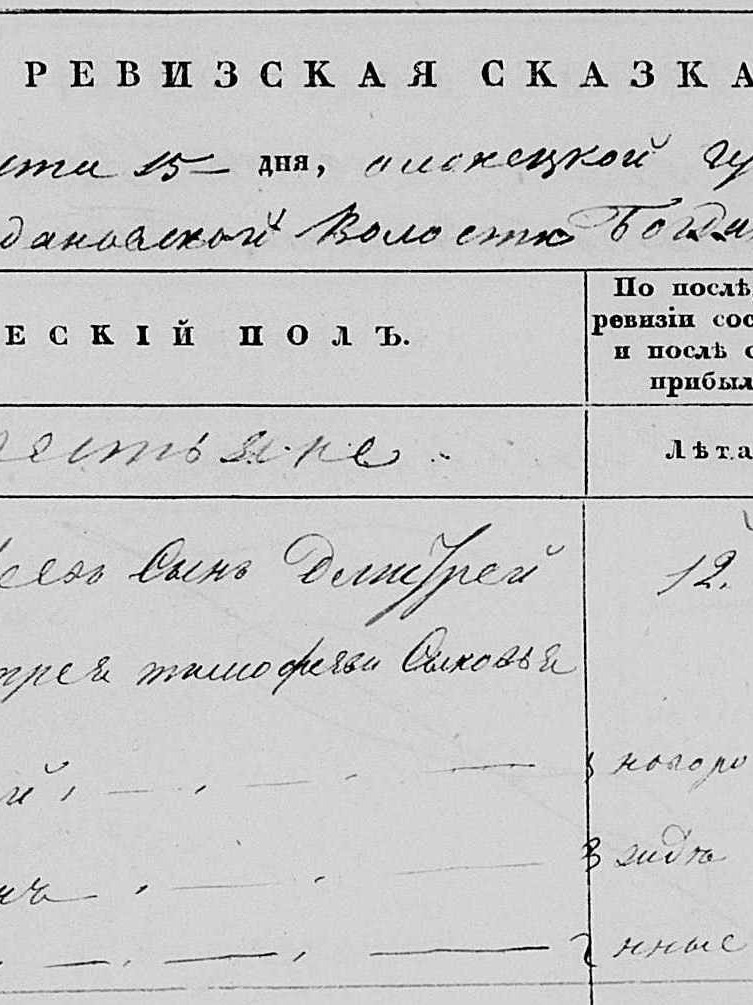 РЕВИЗСКАЯ СКАЗКА
15 дня, олонецкой гу
дановской Волости Богда
ЕСКІЙ ПОЛЪ.
По послѣ
ревизіи сос
и послѣ с
прибыл
естьяне
Лѣта
еевъ Сынъ Дмитрей 12.
трея тимофеева Сыновья
й
новоро
нъ
жидѣ
нные